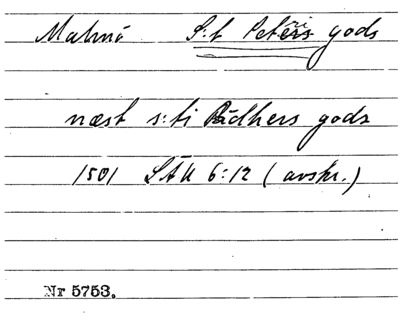 Malmö S:t Petri gods
næst s:ti Pædhers gods
1501 SÄU 6:12 (avskr.)
Nr 5753.